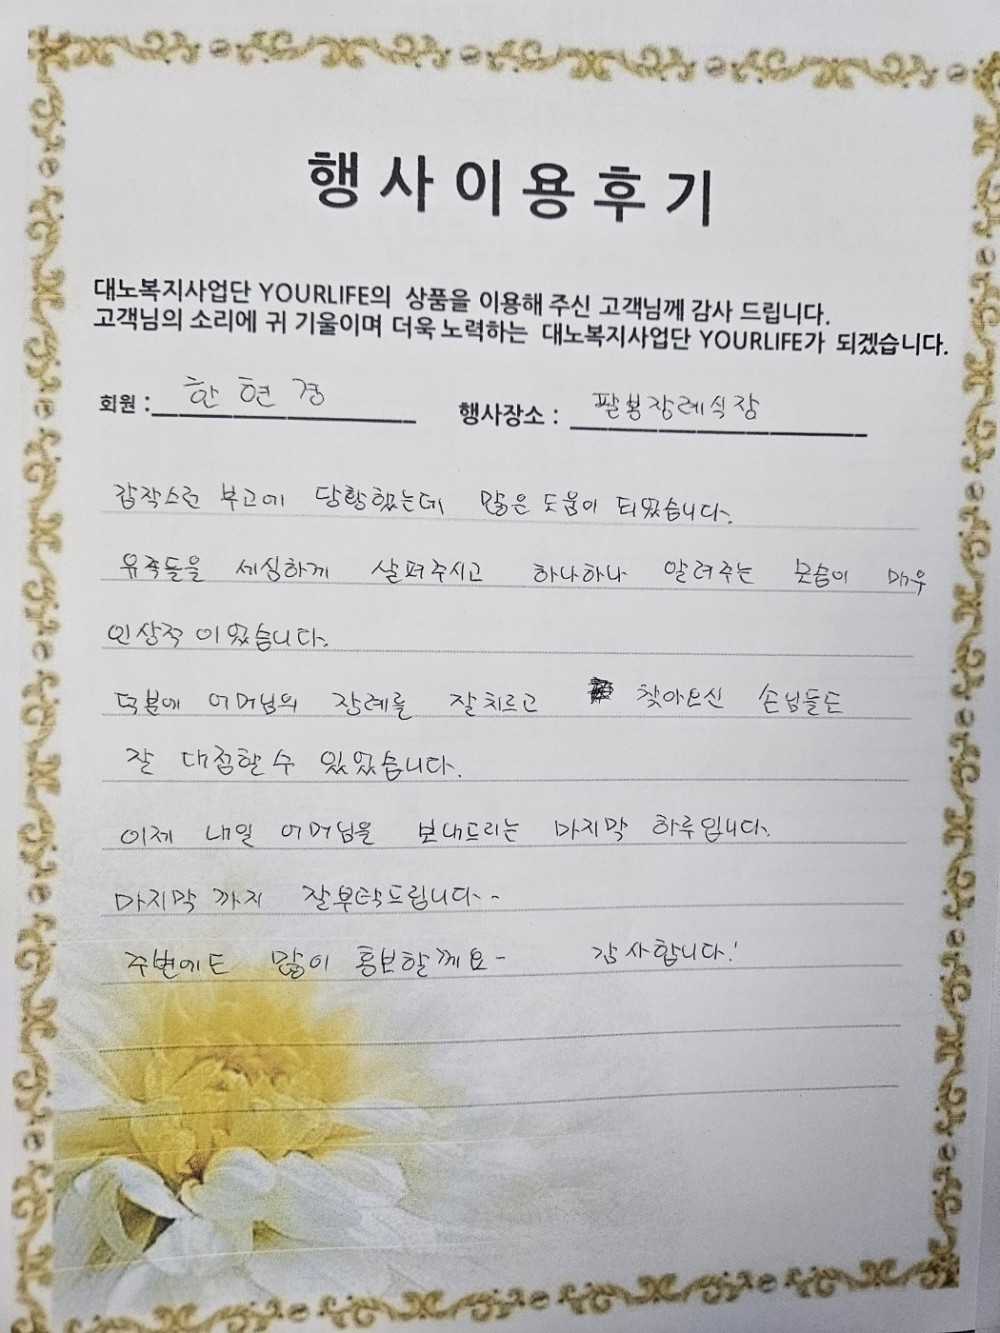 행사이용후기
대노복지사업단 YOURLIFE의 상품을 이용해 주신 고객님께 감사 드립니다.
고객님의 소리에 귀 기울이며 더욱 노력하는 대노복지사업단 YOURLIFE가 되겠습니다.
회원 : 한현경 행사장소 : 팔봉장례식장
갑작스런 부고에 당황했는데 많은 도움이 되었습니다.
유족들을 세심하게 살펴주시고 하나하나 알려주는 모습이 매우
인상적이었습니다.
덕분에 어머님의 장례를 잘치르고 찾아오신 손님들도
잘 대접할수 있었습니다.
이제 내일 어머님을 보내드리는 마지막 하루입니다.
마지막까지 잘부탁드립니다-
주변에도 많이 홍보할께요- 감사합니다!